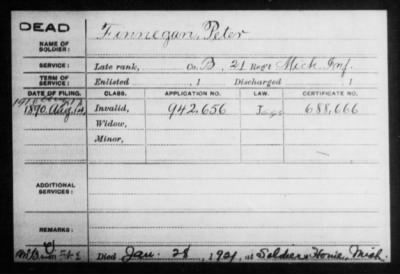 DEAD
NAME OF SOLDIER: Finnegan, Peter
SERVICE: Late rank, Co. B, 21 Reg't Mich. Inf.
TERM OF SERVICE: Enlisted , 1 Discharged , 1
DATE OF FILING. CLASS. APPLICATION NO. LAW. CERTIFICATE NO.
1890. Aug. Invalid, 942.656 688.666
Widow,
Minor,
ADDITIONAL SERVICES:
REMARKS:
Died Jan. 28, 1921, at Soldiers Home, Mich.